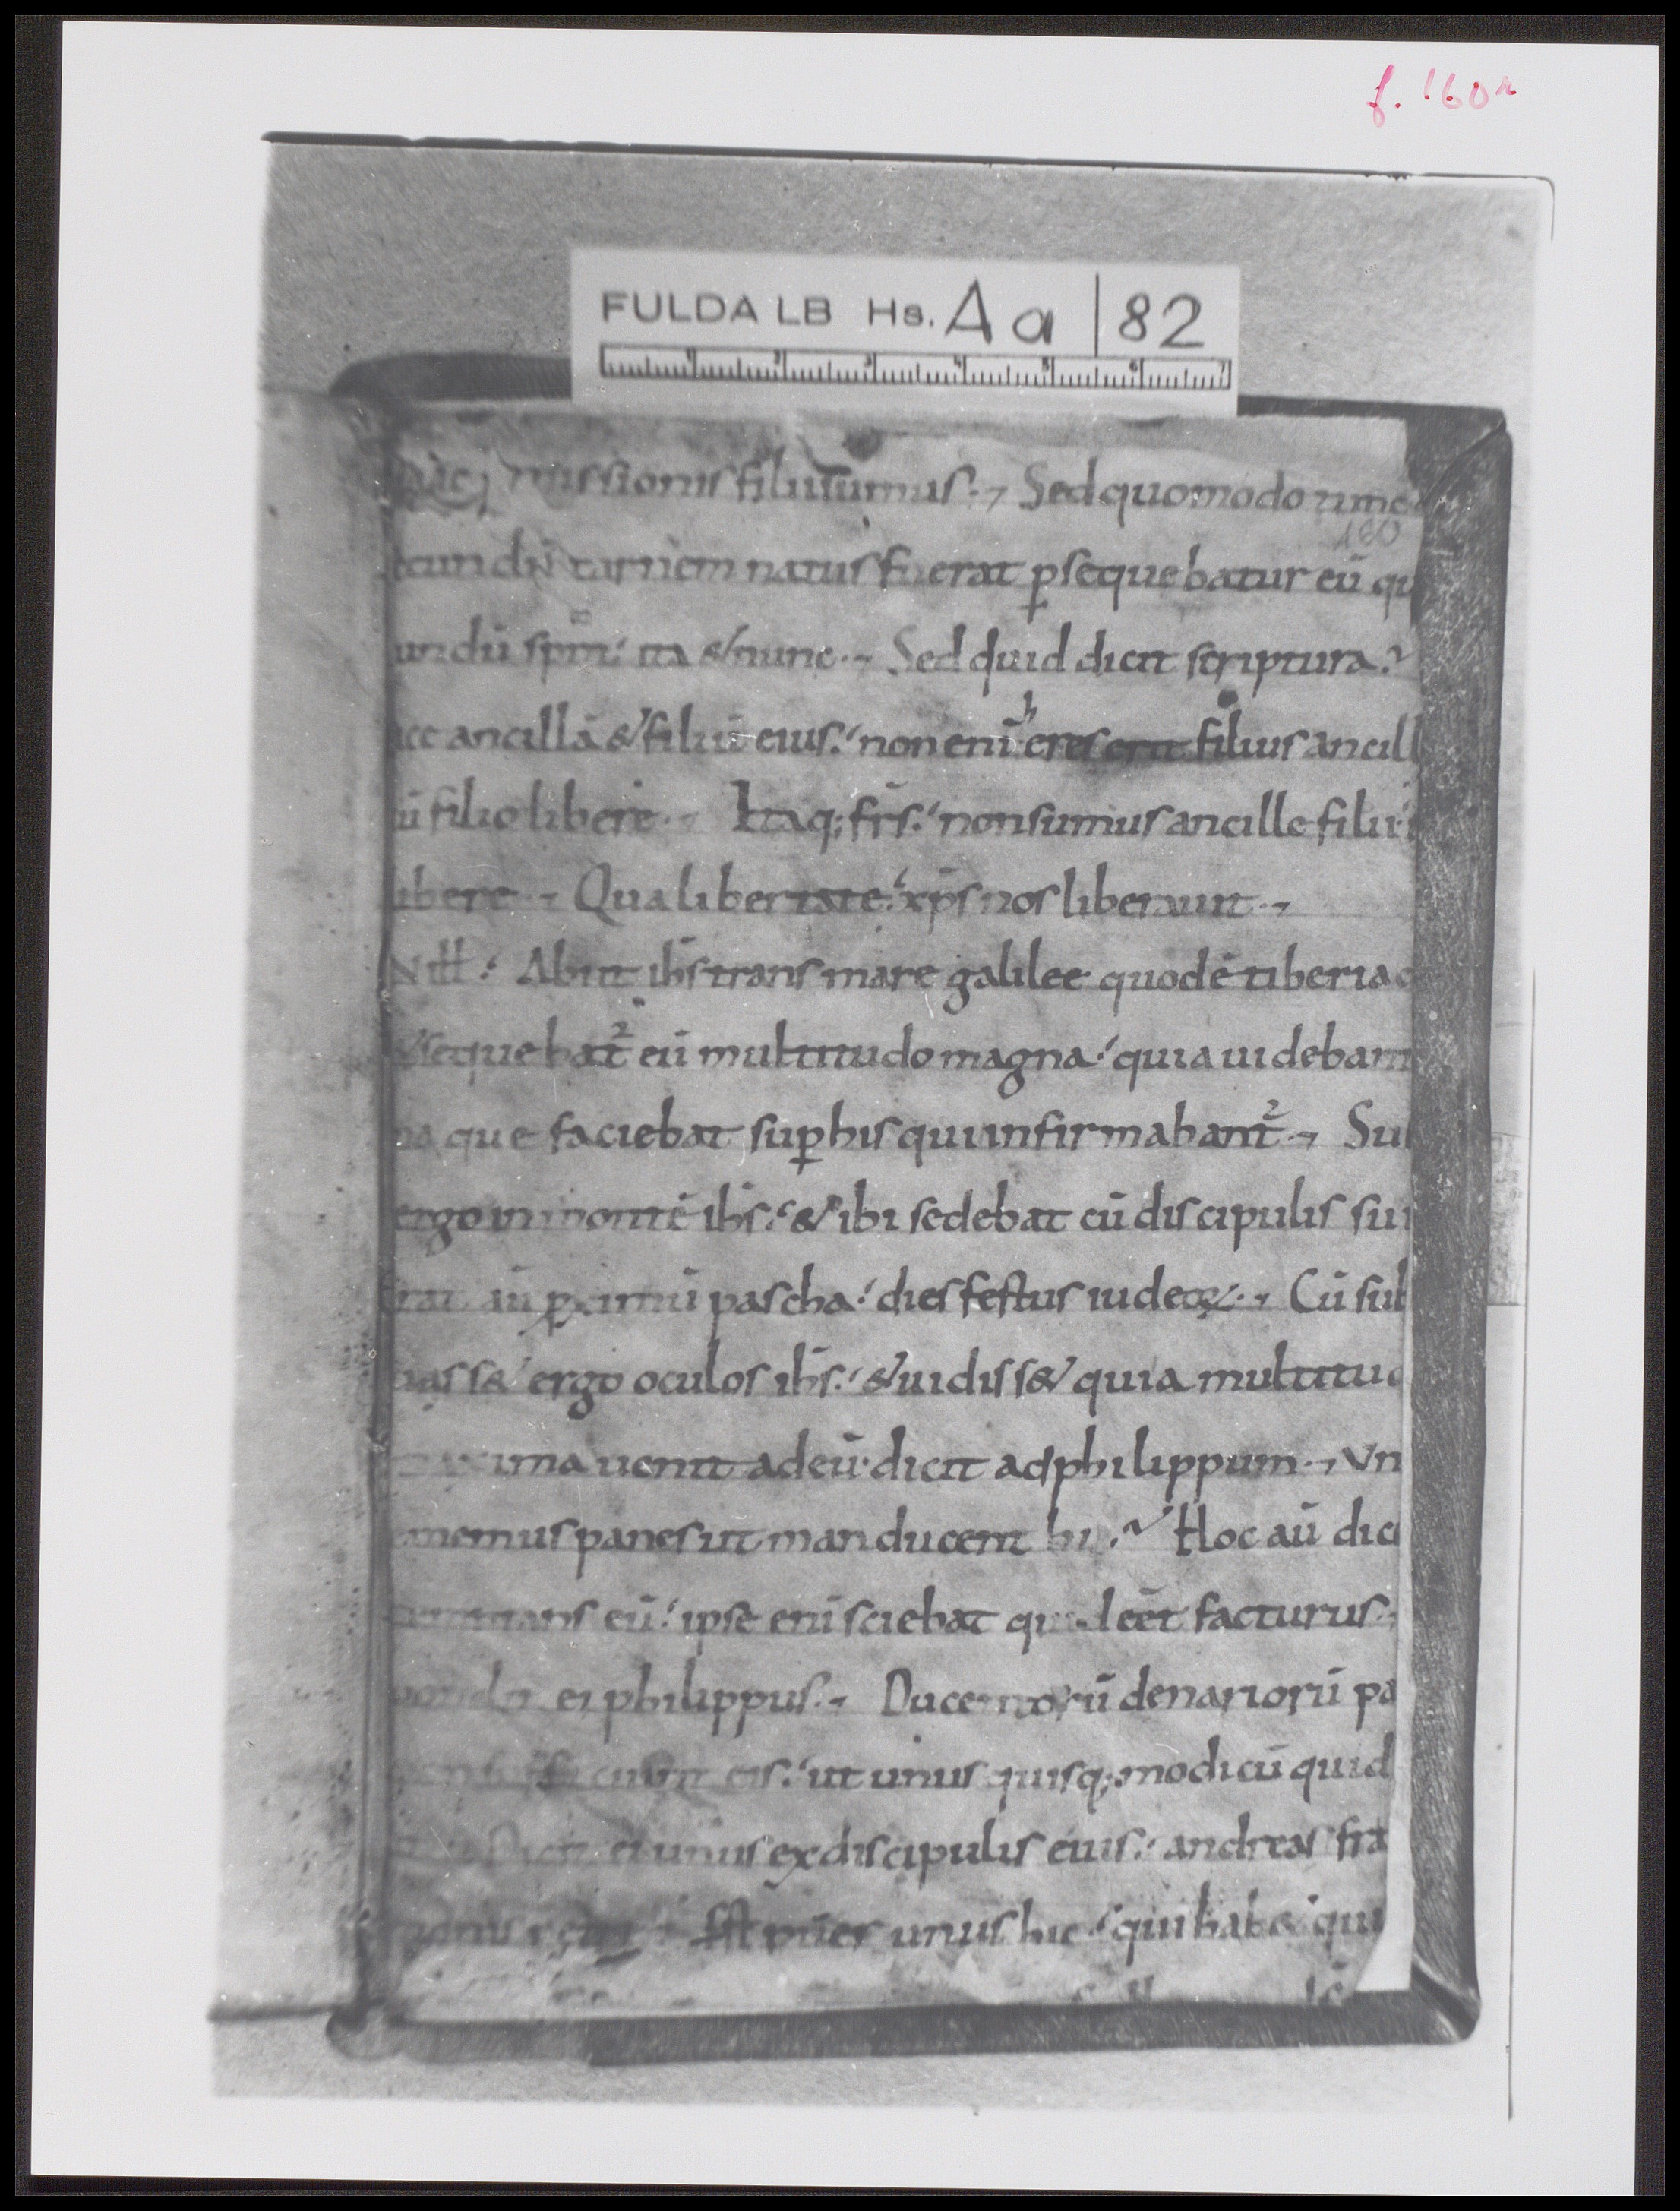 f. 160r
FULDA LB Hs. Aa 82
missionis filii sumus. Sed quomodo
180
cundū carnem natus fuerat ꝑsequebatur eū qu
undū spm̄ ita & nunc. Sed quid dicit scriptura?
ice ancillā & filiū eius. non enī heres erit filius ancill
ū filio libere. Itaq; frs̄. non sumus ancille filii
libere. Qua libertate xp̄s nos liberauit.
Abiit ih̄s trans mare galilee quod ē tiberia
& sequebat² eū multitudo magna. quia uidebant
na que faciebat suꝑ his qui infirmabant². Su
ergo in montē ih̄s. & ibi sedebat cū discipulis sui
erat aū ꝓximū pascha. dies festus iudeoꝝ. Cū sub
uass& ergo oculos ih̄s. & uidiss& quia multitud
ima uenit ad eū. dicit ad philippum. Vn
ememus panes ut manducent hi? Hoc aū dici
temptans eū. ipse enī sciebat quid eēt facturus.
pondit ei philippus. Ducentorū denariorū pa
non sufficiunt eis. ut unus quisq; modicū quid
Dicit ei unus ex discipulis eius. andreas fra
Est puer unus hic. qui hab& qui